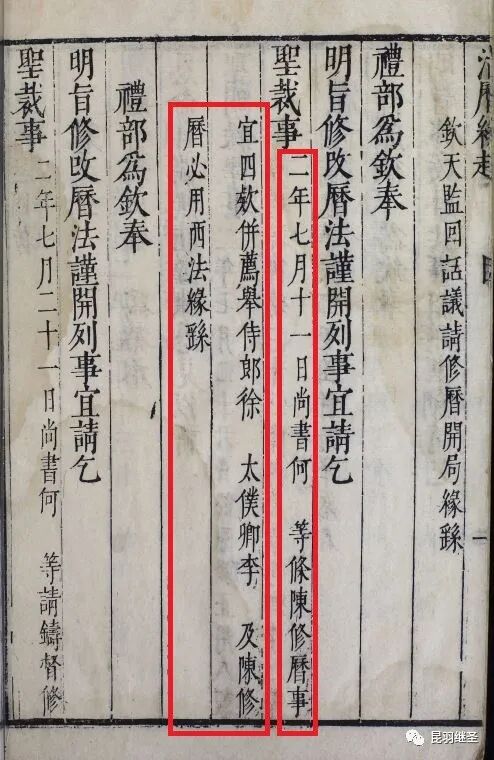 欽天監回話議請修曆開局緣繇
禮部爲欽奉
明旨修改曆法謹開列事宜請乞
聖裁事 二年七月十一日尚書何 等條陳修曆事
宜四欵併薦舉侍郎徐 太僕卿李 及陳修
曆必用西法緣繇
禮部爲欽奉
明旨修改曆法謹開列事宜請乞
聖裁事 二年七月二十一日尚書何 等請鑄督修
昆羽继圣